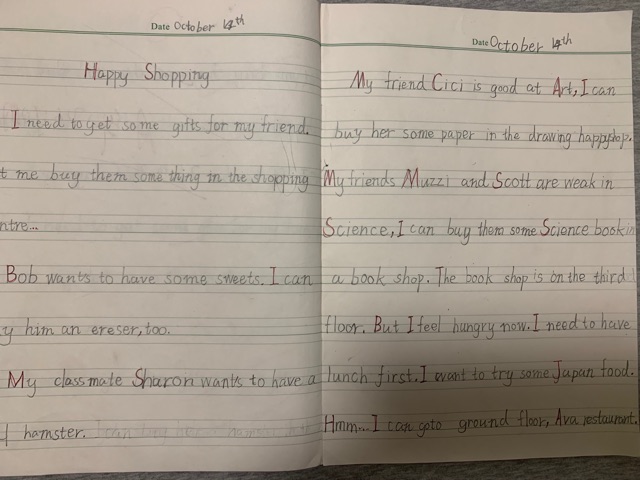 Date October 14th
Happy Shopping
I need to get some gifts for my friend.
t me buy them some thing in the shopping
ntre...
Bob wants to have some sweets. I can
y him an ereser, too.
My classmate Sharon wants to have a
hamster.
Date October 14th
My friend Cici is good at Art, I can
buy her some paper in the drawing happyshop.
My friends Muzzi and Scott are weak in
Science, I can buy them some Science book in
a book shop. The book shop is on the third
floor. But I feel hungry now. I need to have
lunch first. I want to try some Japan food.
Hmm... I can goto ground floor, Ava restaurant.